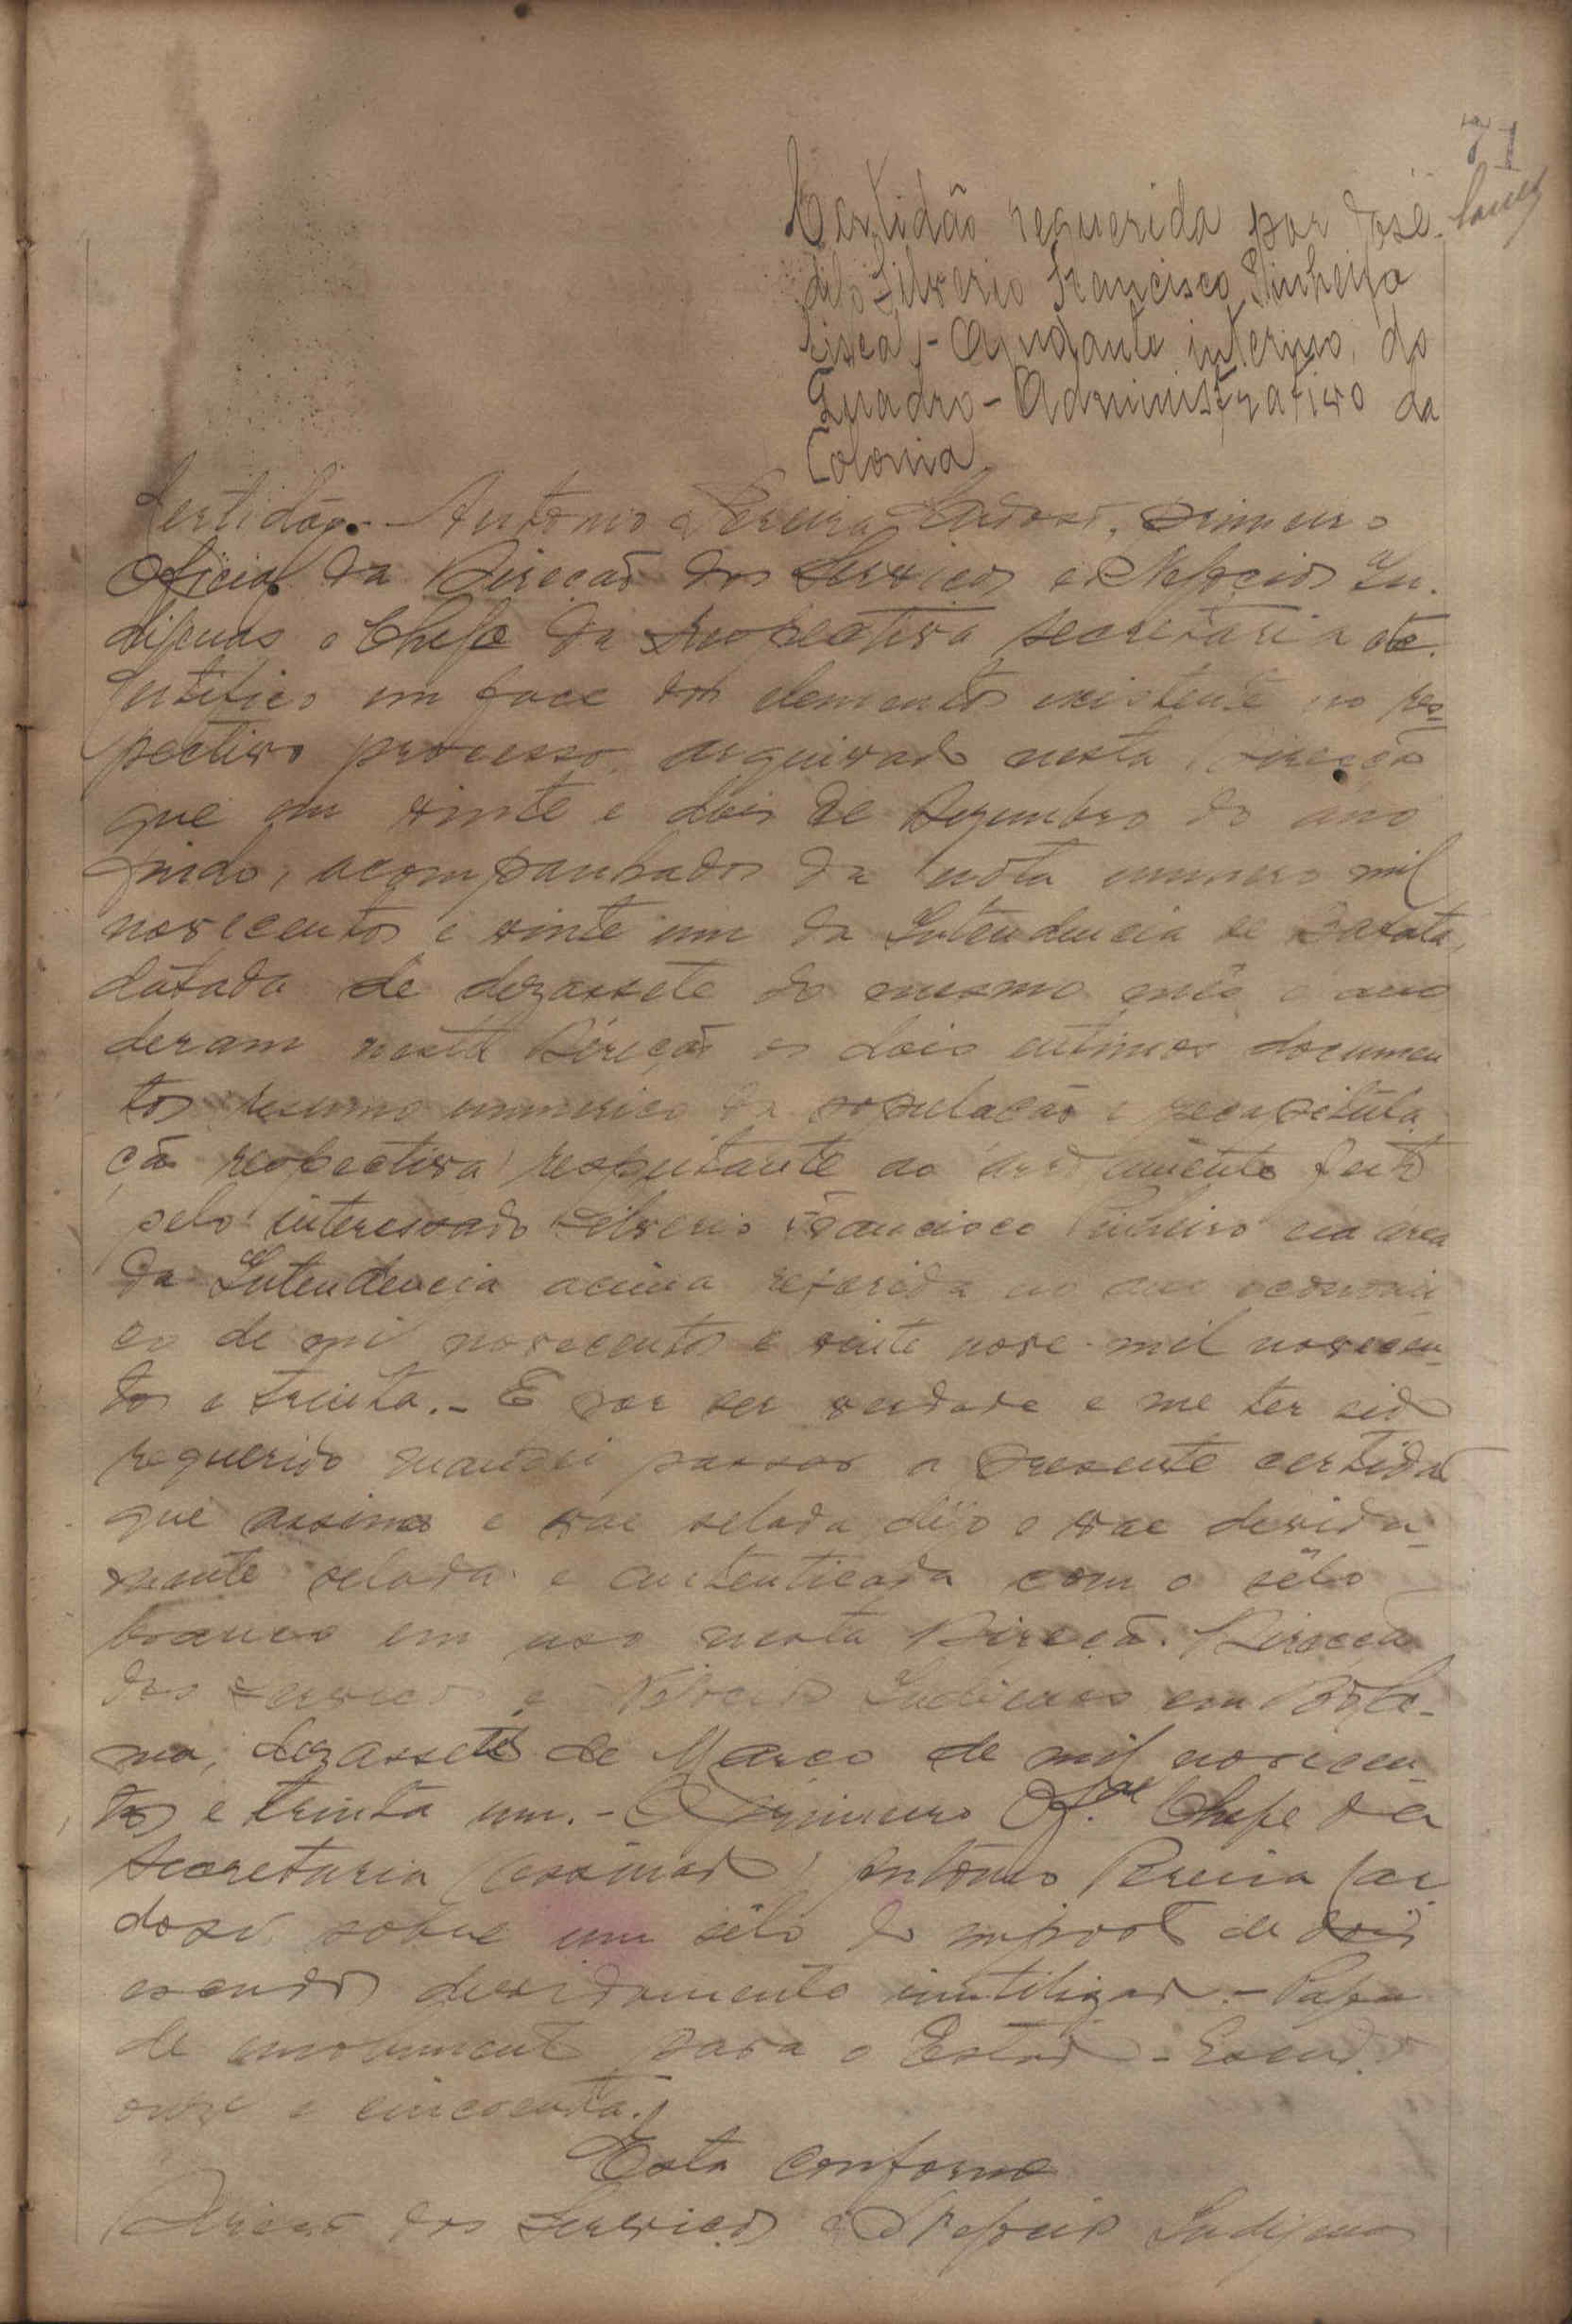 71
Certidão requerida por José
digo Silverio Francisco Pinheiro
fiscal-Ajudante interino, do
Quadro-Administrativo da
Colonia.
Certidão.- Antonio Pereira Cardoso, primeiro
Oficial da Direcção dos Serviços e Negocios In-
digenas e Chefe da respectiva secretaria etc.
Certifico em face dos elementos existente no res=
pectivo processo arquivado nesta Direcção
que em vinte e dois de Dezembro do ano
findo, acompanhados da nota numero mil
novecentos e vinte um da Intendencia de Bafatá,
datada de dezassete do mesmo mês e ano
deram nesta Direcção os dois ultimos documen
tos resumo numerico da população e recapitula
ção respectiva respeitante ao arrolamento feito
pelo interessado Silverio Francisco Pinheiro na area
da Intendencia acima referida no ano economi
co de mil novecentos e vinte nove-mil novecen-
tos e trinta.- E por ser verdade e me ter sido
requerido mandei passar a presente certidão
que assino e vae selada digo e vae devida-
mente selada e autenticada com o sêlo
branco em uso nesta Direcção. Direcção
dos Serviços e Negocios Indigenas em Bola-
ma, dezassete de Março de mil novecen-
tos e trinta um.- O primeiro Of.al Chefe da
Secretaria (assinado) Antonio Pereira Car
doso, sobre um sêlo do imposto de dois
escudos devidamente inutilizado.- Pagou
de emolumento para o Estado - Escudo
onze e cincoenta.
Está conforme
Direcção dos Serviços e Negocios Indigenas